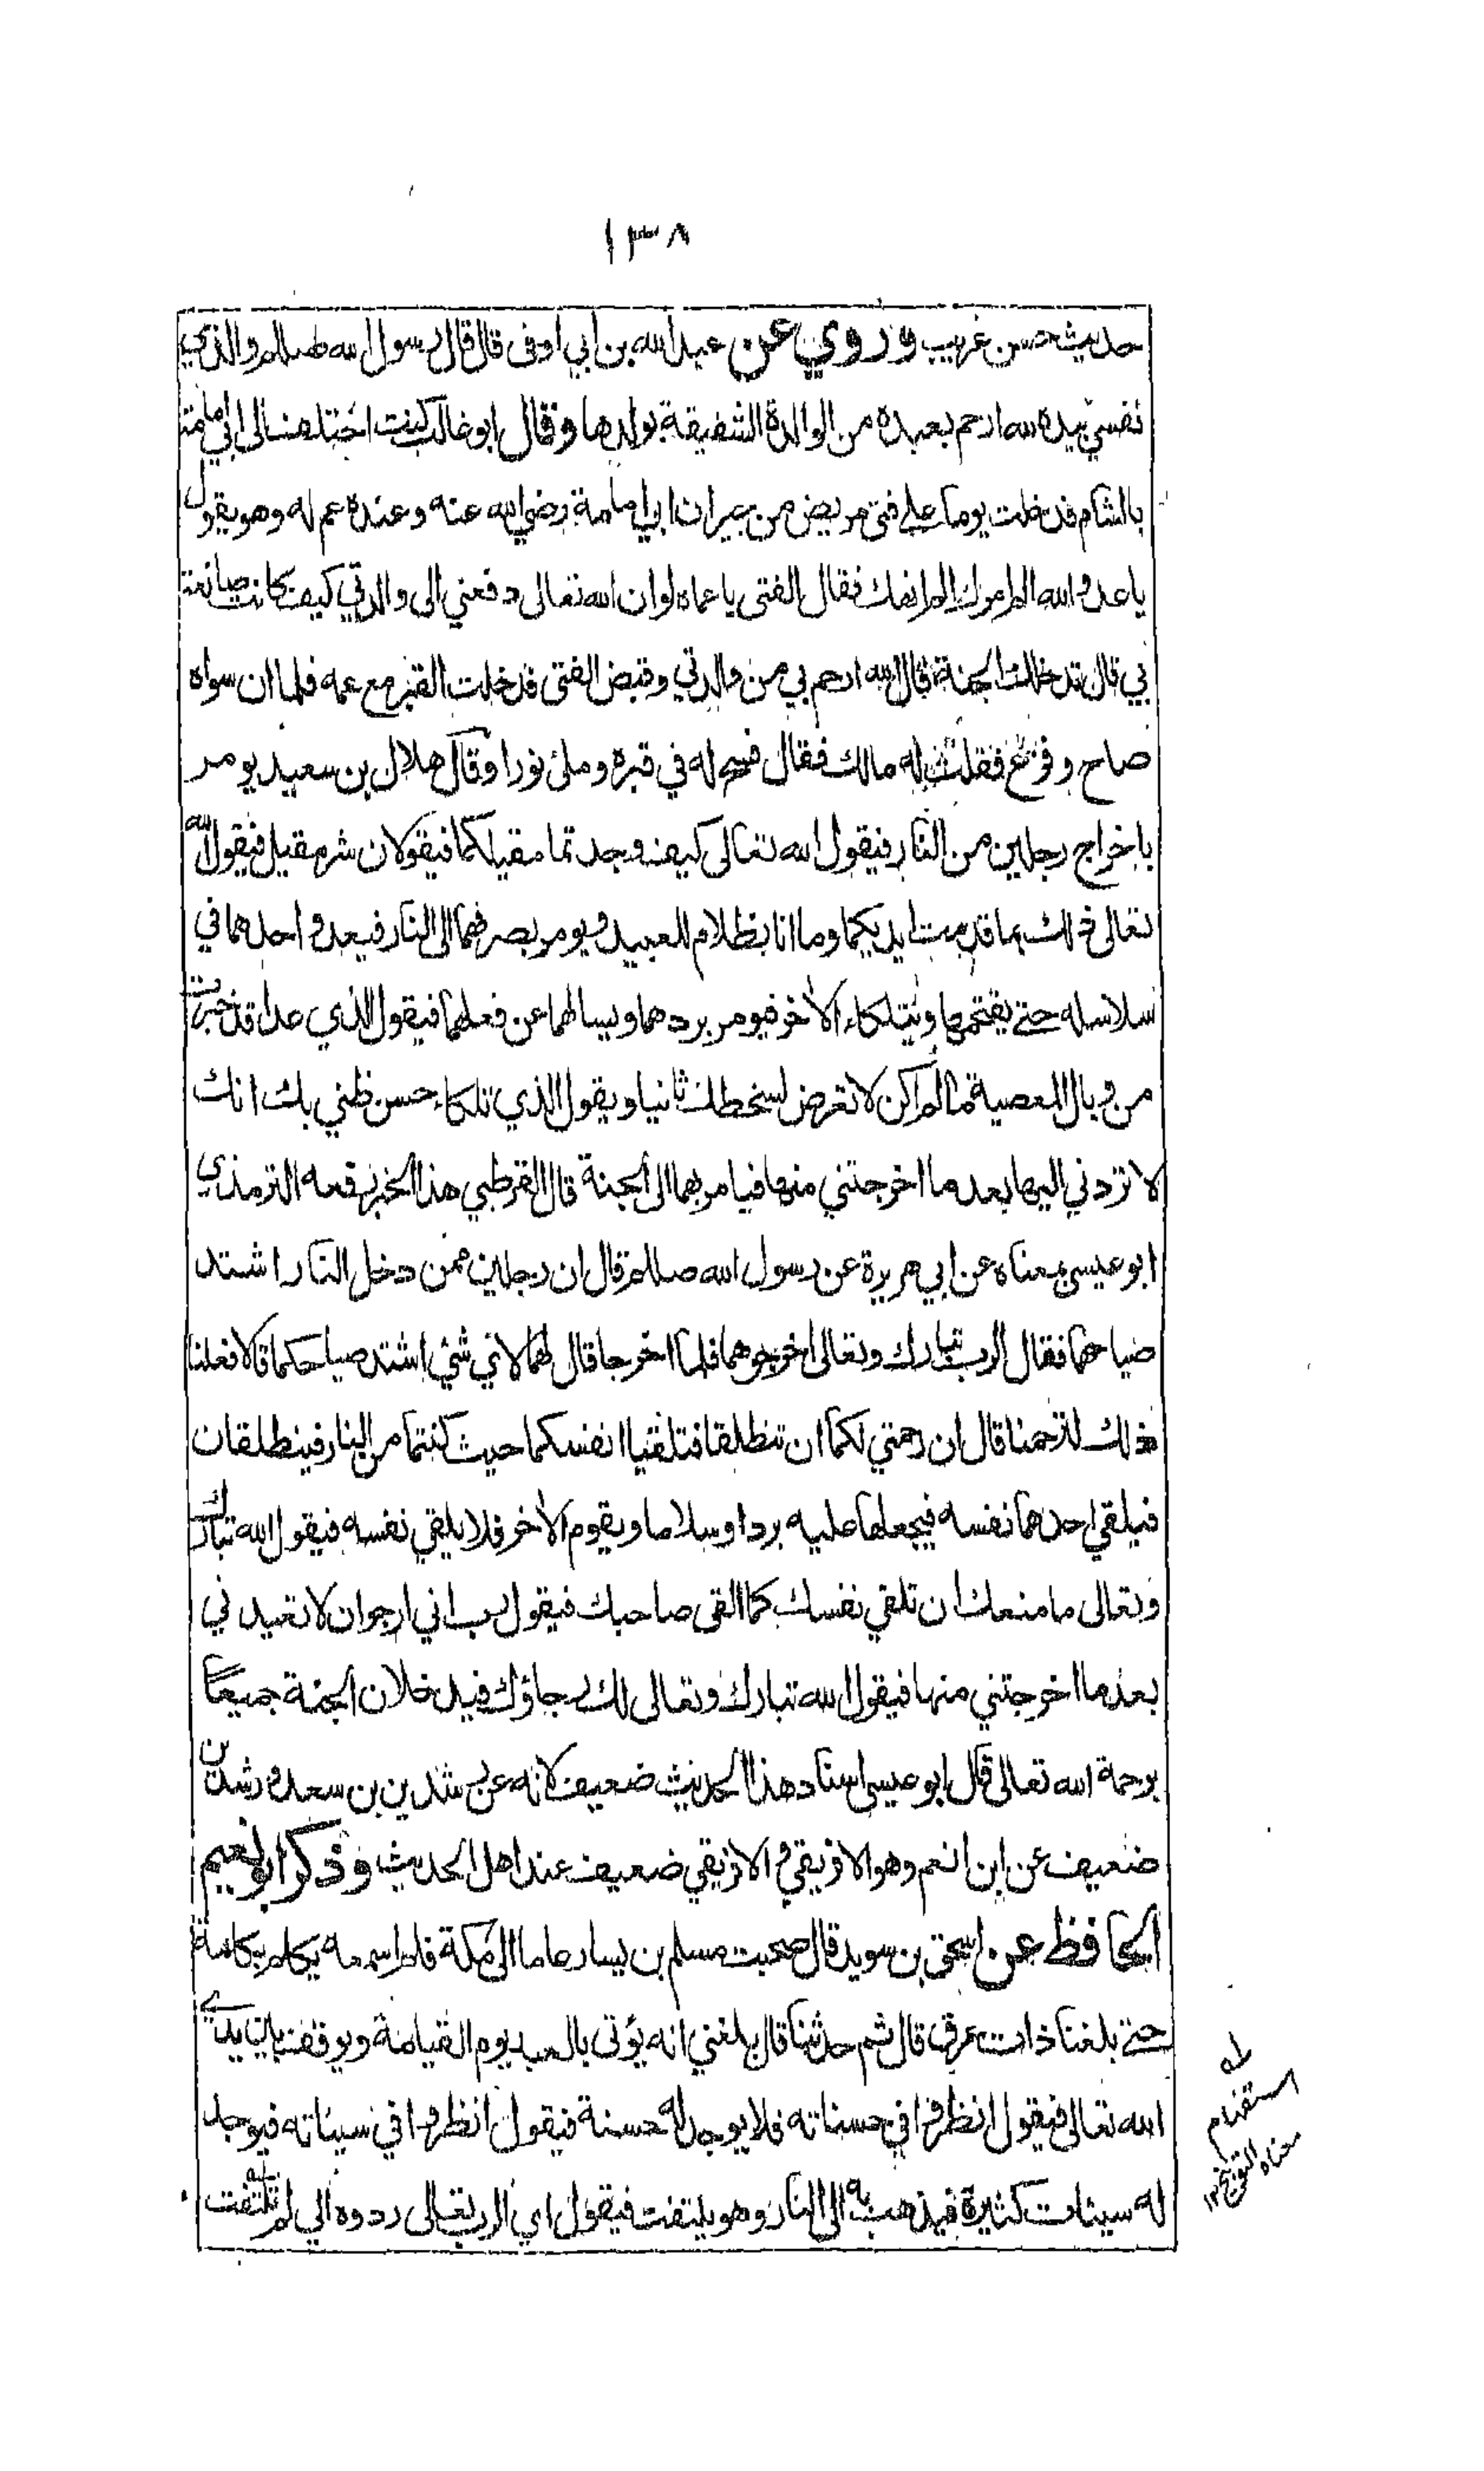 ١٣٨
حديث حسن غريب وروي عن عبد الله بن ابي اوفى قال قال رسول الله صللم والذي
نفسي بيده لله ارحم بعبده من الوالدة الشفيقة بولدها وقال ابو غالب كنت اختلف الى ابي امامة
بالشام فدخلت يوما على فتى مريض من جيران ابي امامة رضي الله عنه وعنده عم له وهو يقول
يا عدو الله الم امرك الم انهك فقال الفتى يا عماه لو ان الله تعالى دفعني الى والدتي كيف كانت صانعة
بي قال تدخلك الجنة قال الله ارحم بي من والدتي وقبض الفتى فدخلت القبر مع عمه فلما ان سواه
صاح وفزع فقلت له مالك فقال فسح له في قبره وملئ نورا وقال هلال بن سعيد يومر
باخراج رجلين من النار فيقول الله تعالى كيف وجدتما مقيلكما فيقولان شر مقيل فيقول الله
تعالى ذلك بما قدمت ايديكما وما انا بظلام للعبيد ويومر بصرفهما الى النار فيعدو احدهما في
سلاسله حتى يقتحمها ويتلكاء الاخر فيومر بردهما ويسالهما عن فعلهما فيقول الذي عدا قد خبرت
من وبال المعصية مالم اكن لاتعرض لسخطك ثانيا ويقول الذي تلكاء حسن ظني بك انك
لا تردني اليها بعد ما اخرجتني منها فيامر بهما الى الجنة قال القرطبي هذا الخبر رفعه الترمذي
ابو عيسى بمعناه عن ابي هريرة عن رسول الله صللم قال ان رجلين ممن دخل النار اشتد
صياحهما فقال الرب تبارك وتعالى اخرجوهما فلما اخرجا قال لهما لاي شئ اشتد صياحكما قالا فعلنا
ذلك لترحمنا قال ان رحمتي لكما ان تنطلقا فتلقيا انفسكما حيث كنتما من النار فينطلقان
فيلقي احدهما نفسه فيجعلها عليه بردا وسلاما ويقوم الاخر فلا يلقي نفسه فيقول الله تبارك
وتعالى ما منعك ان تلقي نفسك كما القى صاحبك فيقول رب اني ارجوان لا تعيدني
بعد ما اخرجتني منها فيقول الله تبارك وتعالى لك رجاؤك فيدخلان الجنة جميعًا
برحمة الله تعالى قال ابو عيسى اسناد هذا الحديث ضعيف لانه عن رشدين بن سعد ورشدين
ضعيف عن ابن انعم وهو الافريقي والافريقي ضعيف عند اهل الحديث وذكر ابو نعيم
الحافظ عن اسحق بن سويد قال صحبت مسلم بن يسار عاما الى مكة فلم اسمعه يكلم بكلمة
حتى بلغنا ذات عرق قال ثم حدثنا قال بلغني انه يؤتى بالعبد يوم القيامة ويوقف بين يدي
الله تعالى فيقول انظروا في حسناته فلا يوجد له حسنة فيقول انظروا في سيئاته فيوجد
له سيئات كثيرة فيذهب به الى النار وهو يلتفت فيقول اي الرب تعالى ردوه الي لم تلتفت
له
استفهام
معناه التوبيخ ١٢